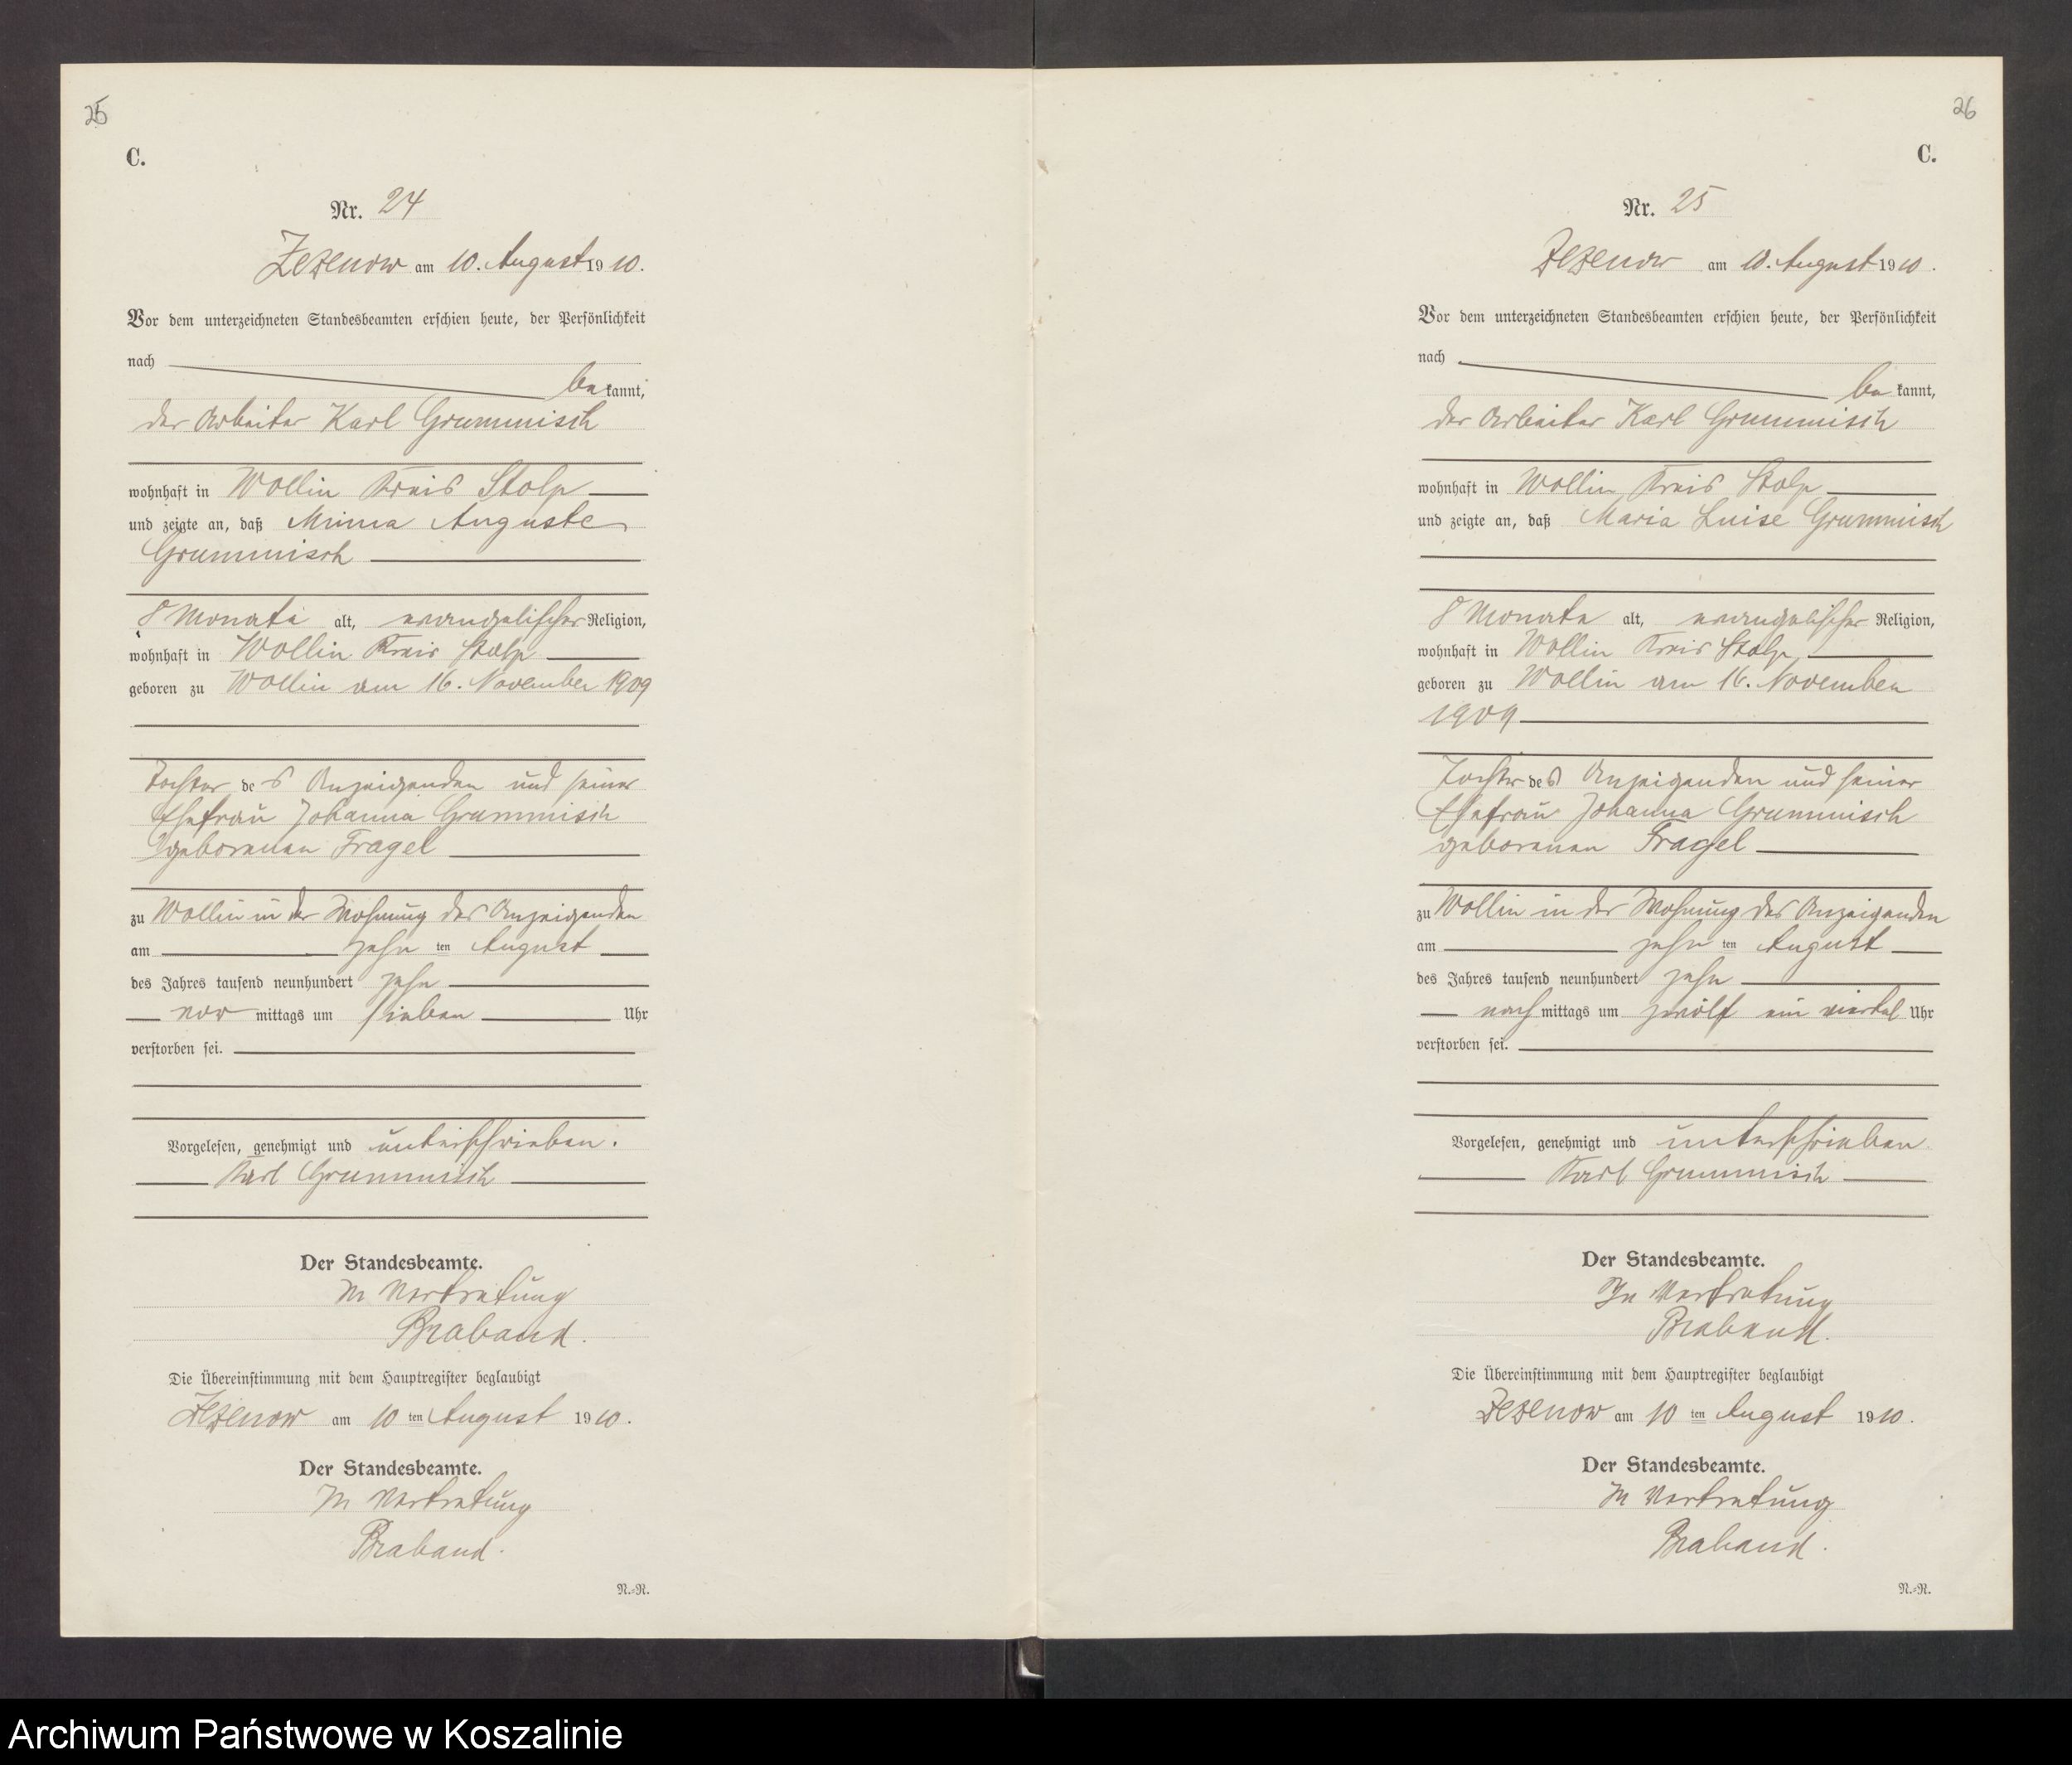 25
C.
Nr. 24
Zezenow am 10. August 1910.
Vor dem unterzeichneten Standesbeamten erschien heute, der Persönlichkeit
nach
bekannt,
der Arbeiter Karl Grummisch
wohnhaft in Wollin Kreis Stolp
und zeigte an, daß Minna Auguste
Grummisch
8 Monate alt, evangelischer Religion,
wohnhaft in Wollin Kreis Stolp
geboren zu Wollin am 16. November 1909
Tochter des Anzeigenden und seiner
Ehefrau Johanna Grummisch
geborenen Fragel
zu Wollin in der Wohnung des Anzeigenden
am zehnten August
des Jahres tausend neunhundert zehn
vormittags um sieben Uhr
verstorben sei.
Vorgelesen, genehmigt und unterschrieben.
Karl Grummisch
Der Standesbeamte.
In Vertretung
Braband.
Die Übereinstimmung mit dem Hauptregister beglaubigt
Zezenow am 10ten August 1910.
Der Standesbeamte.
In Vertretung
Braband.
N.=N.
26
C.
Nr. 25
Zezenow am 10. August 1910.
Vor dem unterzeichneten Standesbeamten erschien heute, der Persönlichkeit
nach
bekannt,
der Arbeiter Karl Grummisch
wohnhaft in Wollin Kreis Stolp
und zeigte an, daß Maria Luise Grummisch
8 Monate alt, evangelischer Religion,
wohnhaft in Wollin Kreis Stolp
geboren zu Wollin am 16. November
1909
Tochter des Anzeigenden und seiner
Ehefrau Johanna Grummisch
geborenen Fragel
zu Wollin in der Wohnung des Anzeigenden
am zehnten August
des Jahres tausend neunhundert zehn
nachmittags um zwölf ein viertel Uhr
verstorben sei.
Vorgelesen, genehmigt und unterschrieben
Karl Grummisch
Der Standesbeamte.
In Vertretung
Braband.
Die Übereinstimmung mit dem Hauptregister beglaubigt
Zezenow am 10ten August 1910.
Der Standesbeamte.
In Vertretung
Braband.
N.=N.
Archiwum Państwowe w Koszalinie